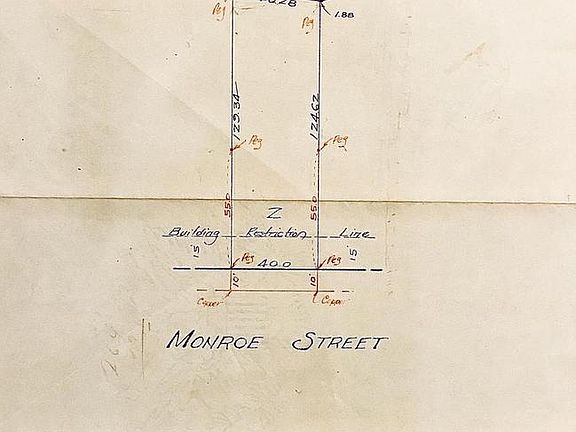 Peg
Peg
1.88
129.34
124.62
Peg
Peg
55.0
Z
55.0
Building Restriction Line
15'
15'
Peg
40.0
Peg
10'
10'
Copper
Copper
MONROE STREET